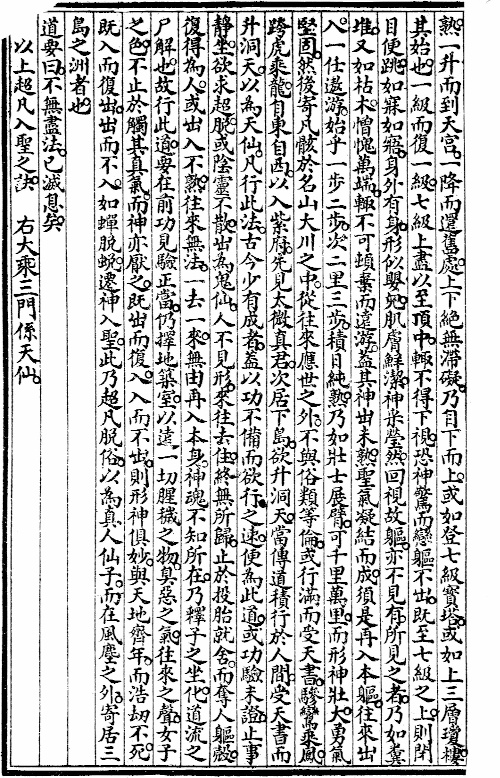 熟一升而到天宮一降而還舊處上下絕無滯礙乃自下而上或如登七級寶塔或如上三層瓊樓
其始也一級而復一級七級上盡以至頂中輙不得下視恐神驚而戀軀不出既至七級之上則閉
目便跳如寐如寤身外有身形似嬰兒肌膚鮮潔神采瑩然回視故軀亦不見有所見之者乃如糞
堆又如枯木憎愧萬端輙不可頓棄而遠遊蓋其神出未熟聖氣凝結而成須是再入本軀往來出
入一任遨遊始乎一步二步次二里三步積日純熟乃如壯士展臂可千里萬里而形神壯大勇氣
堅固然後寄凡骸於名山大川之中從往來應世之外不與俗類等倫或行滿而受天書驂鸞乘鳳
跨虎乘龍自東自西以入紫府先見太微真君次居下島欲升洞天當傳道積行於人間受天書而
升洞天以為天仙凡行此法古今少有成者蓋以功不備而欲行之速便為此道或功驗未證止事
靜坐欲求超脫或陰靈不散出為鬼仙人不見形來往去住終無所歸止於投胎就舍而奪人軀殼
復得為人或出入不熟往來無法一去一來無由再入本身神魂不知所在乃釋子之坐化道流之
尸解也故行此道要在前功見驗正當仍擇地築室以遠一切腥穢之物臭惡之氣往來之聲女子
之色不止於觸其真氣而神亦厭之既出而復入入而不出則形神俱妙與天地齊年而浩劫不死
既入而復出出而不入如蟬脫蛻遷神入聖此乃超凡脫俗以為真人仙子而在風塵之外寄居三
島之洲者也
道要曰不無盡法已滅息矣
以上超凡入聖之訣　右大乘三門係天仙